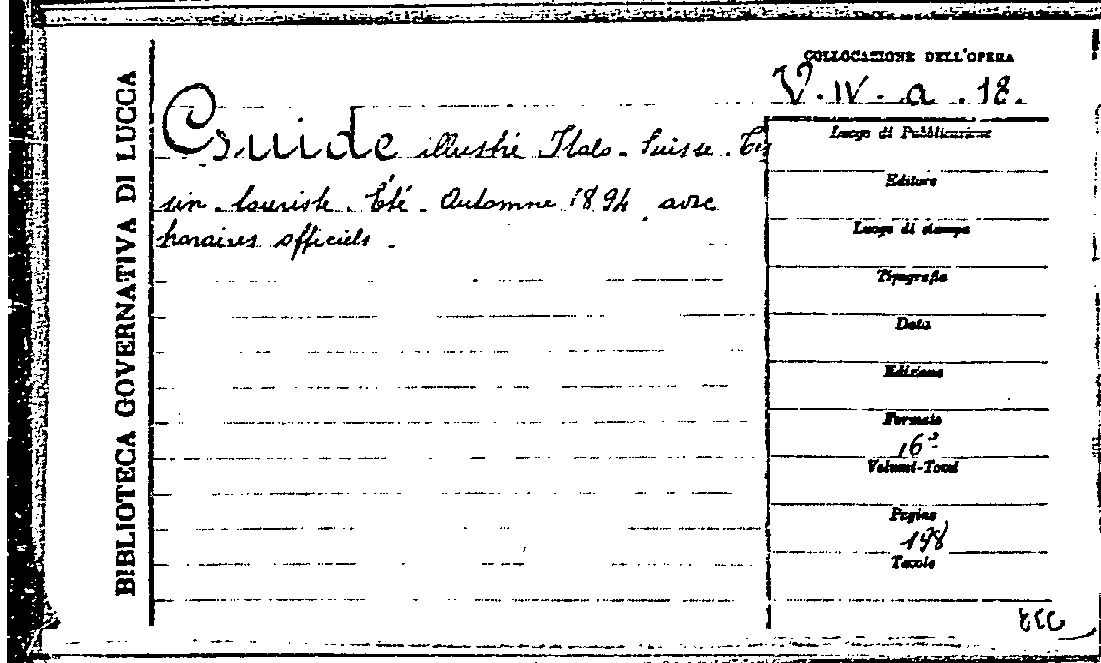 BIBLIOTECA GOVERNATIVA DI LUCCA
COLLOCAZIONE DELL'OPERA
V. IV. a. 18.
Guide illustré Italo-Suisse.
sin-touriste. Été-Automne 1894. avec
horaires officiels.
Luogo di Pubblicazione
Editore
Luogo di stampa
Tipografia
Data
Edizione
Formato
16°
Volumi-Tomi
Pagine
198
Tavole